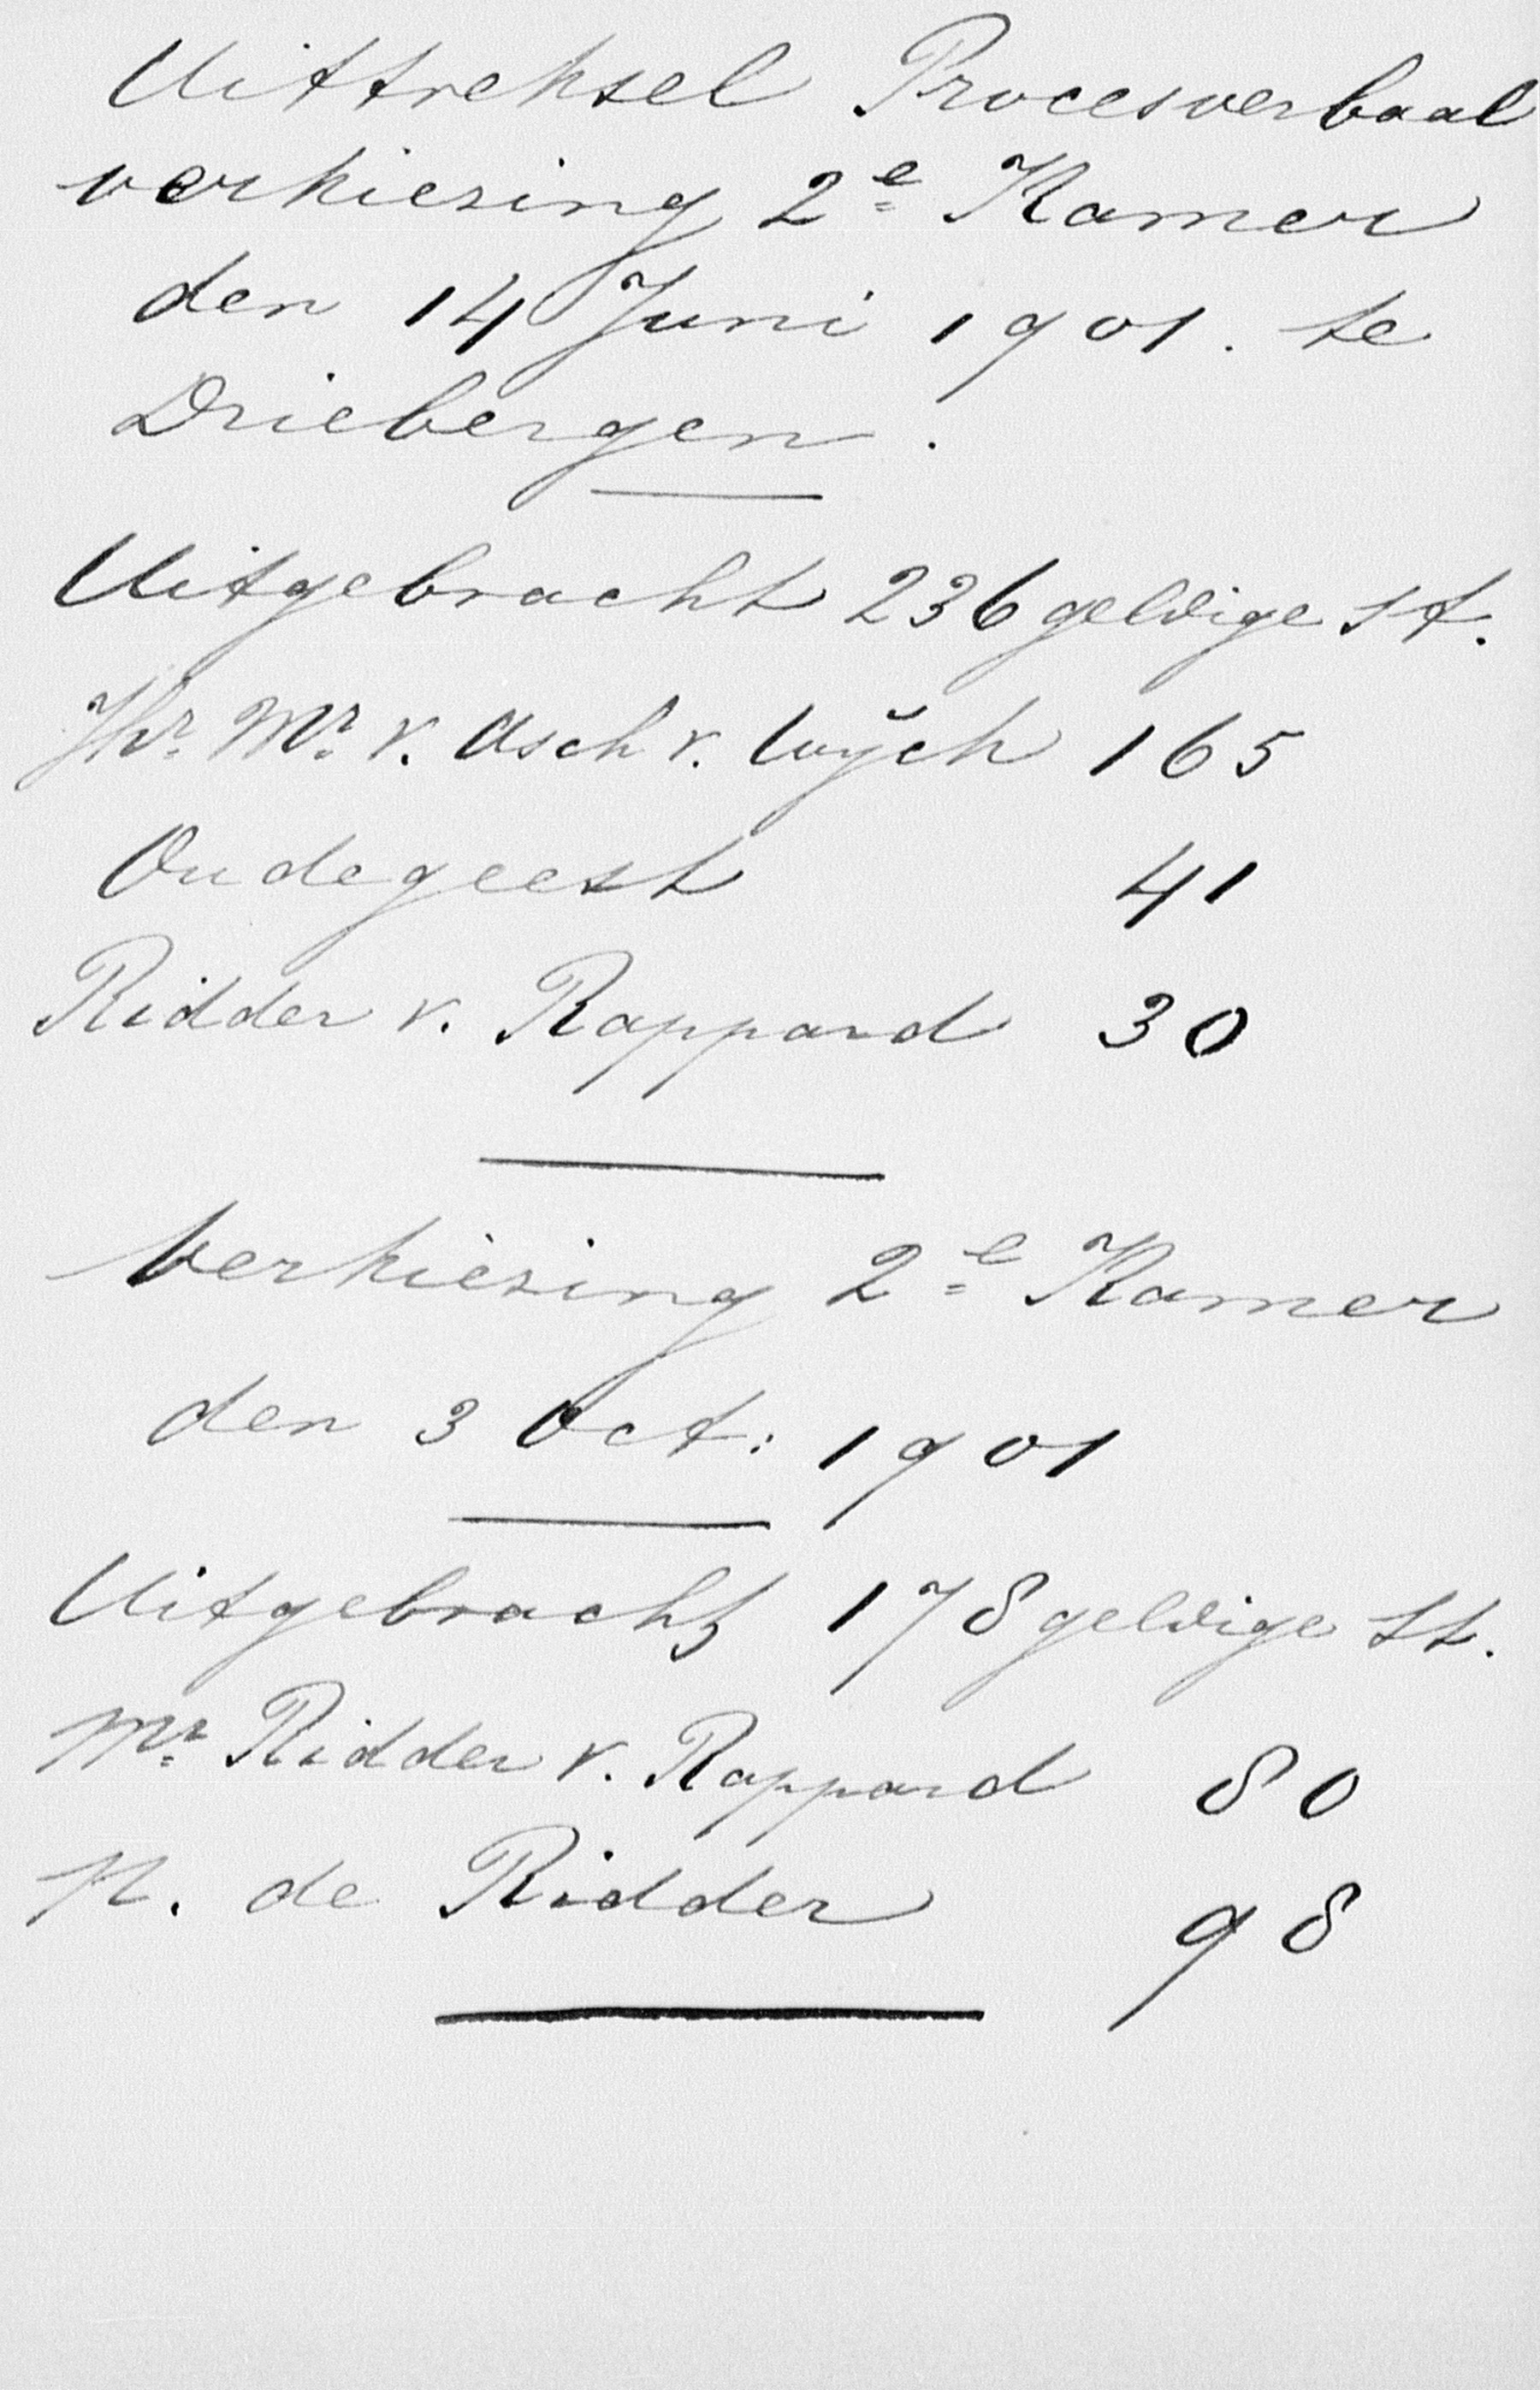 Uittreksel Procesverbaal
verkiesing 2e Kamer
den 14 Juni 1901. te
Driebergen.
Uitgebracht 236 geldige st.
Jhr. Mr. v. Asch v. Wijck 165
Oudegeest 41
Ridder v. Rappard 30
Verkiesing 2e Kamer
den 3 Oct: 1901
Uitgebracht 178 geldige st.
Mr. Ridder v. Rappard 80
N. de Ridder 98